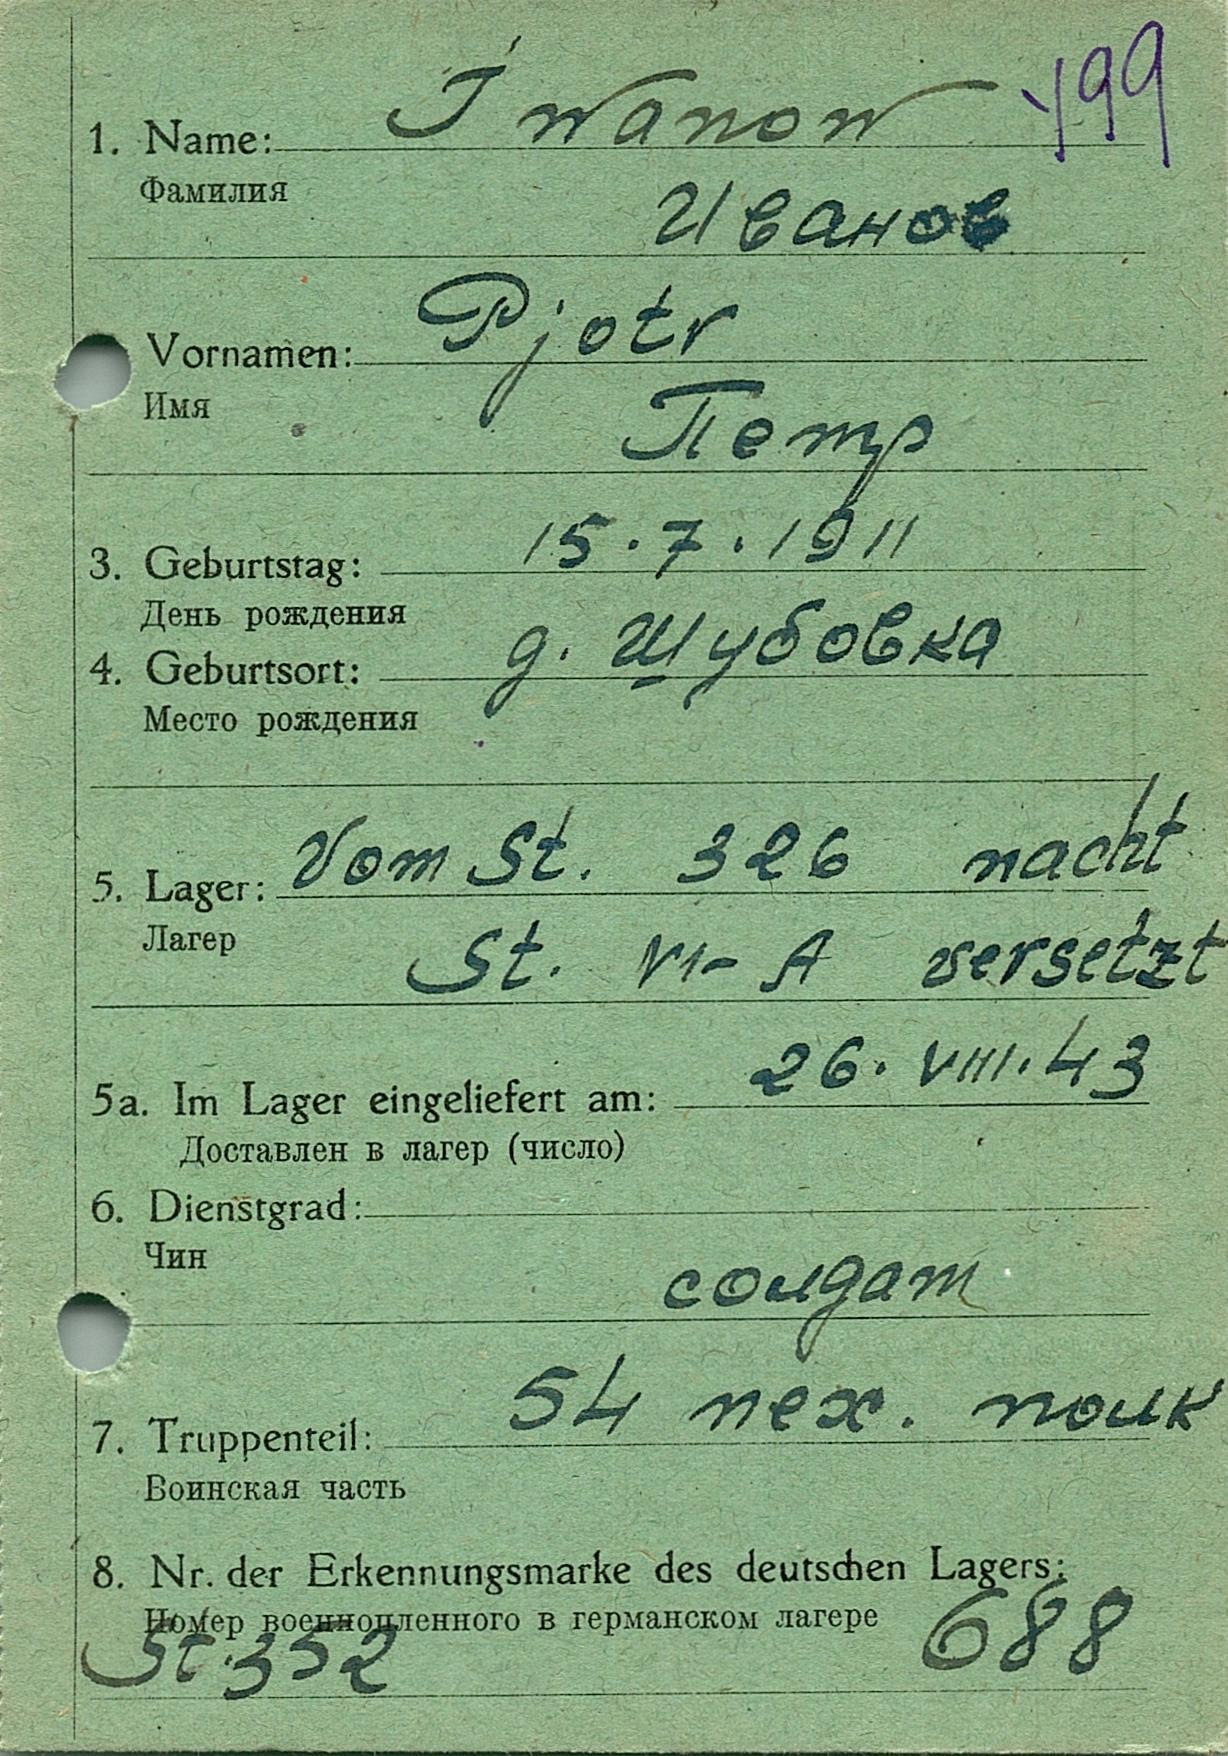 199
1. Name: Iwanow
Фамилия
Иванов
Vornamen: Pjotr
Имя
Петр
3. Geburtstag: 15.7.1911
День рождения
4. Geburtsort: д. Шубовка
Место рождения
5. Lager: Vom St. 326 nacht
Лагер
St. VI-A versetzt
5a. Im Lager eingeliefert am: 26.VIII.43
Доставлен в лагер (число)
6. Dienstgrad:
Чин
солдат
7. Truppenteil: 54 пех. полк
Воинская часть
8. Nr. der Erkennungsmarke des deutschen Lagers:
Номер военнопленного в германском лагере 688
St. 352